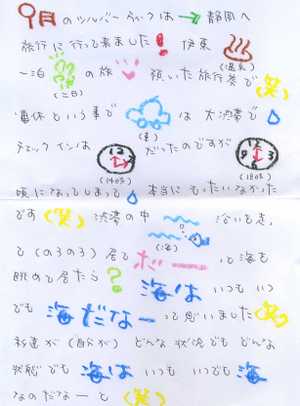 9月のシルバーウィークは→静岡へ
旅行に行って来ました！伊東
(温泉)
一泊の旅 頂いた旅行券で(笑)
(二日)
連休という事で は大渋滞で
(車)
チェックインは だったのですが
(14時) (18時)
頃になってしまって 本当にもったいなかった
です(笑) 渋滞の中 沿いを走っ
(海)
て(のろのろ)居て ボーーっと海を
眺めて居たら？ 海は いつもいつ
でも 海だなーって思いました(笑)
私達が(自分が)どんな状況でもどんな
状態でも 海は いつもいつでも海
なのだなーと(笑)